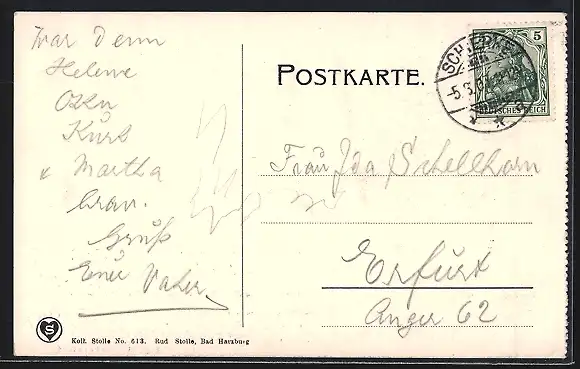 Helene
Otto
Kurt
Martha
Gruß
Vater.
POSTKARTE.
SCHIERKE
5
DEUTSCHES REICH
Frau Ida Schellhorn
Erfurt
Anger 62
Koll. Stolle No. 613. Rud Stolle, Bad Harzburg